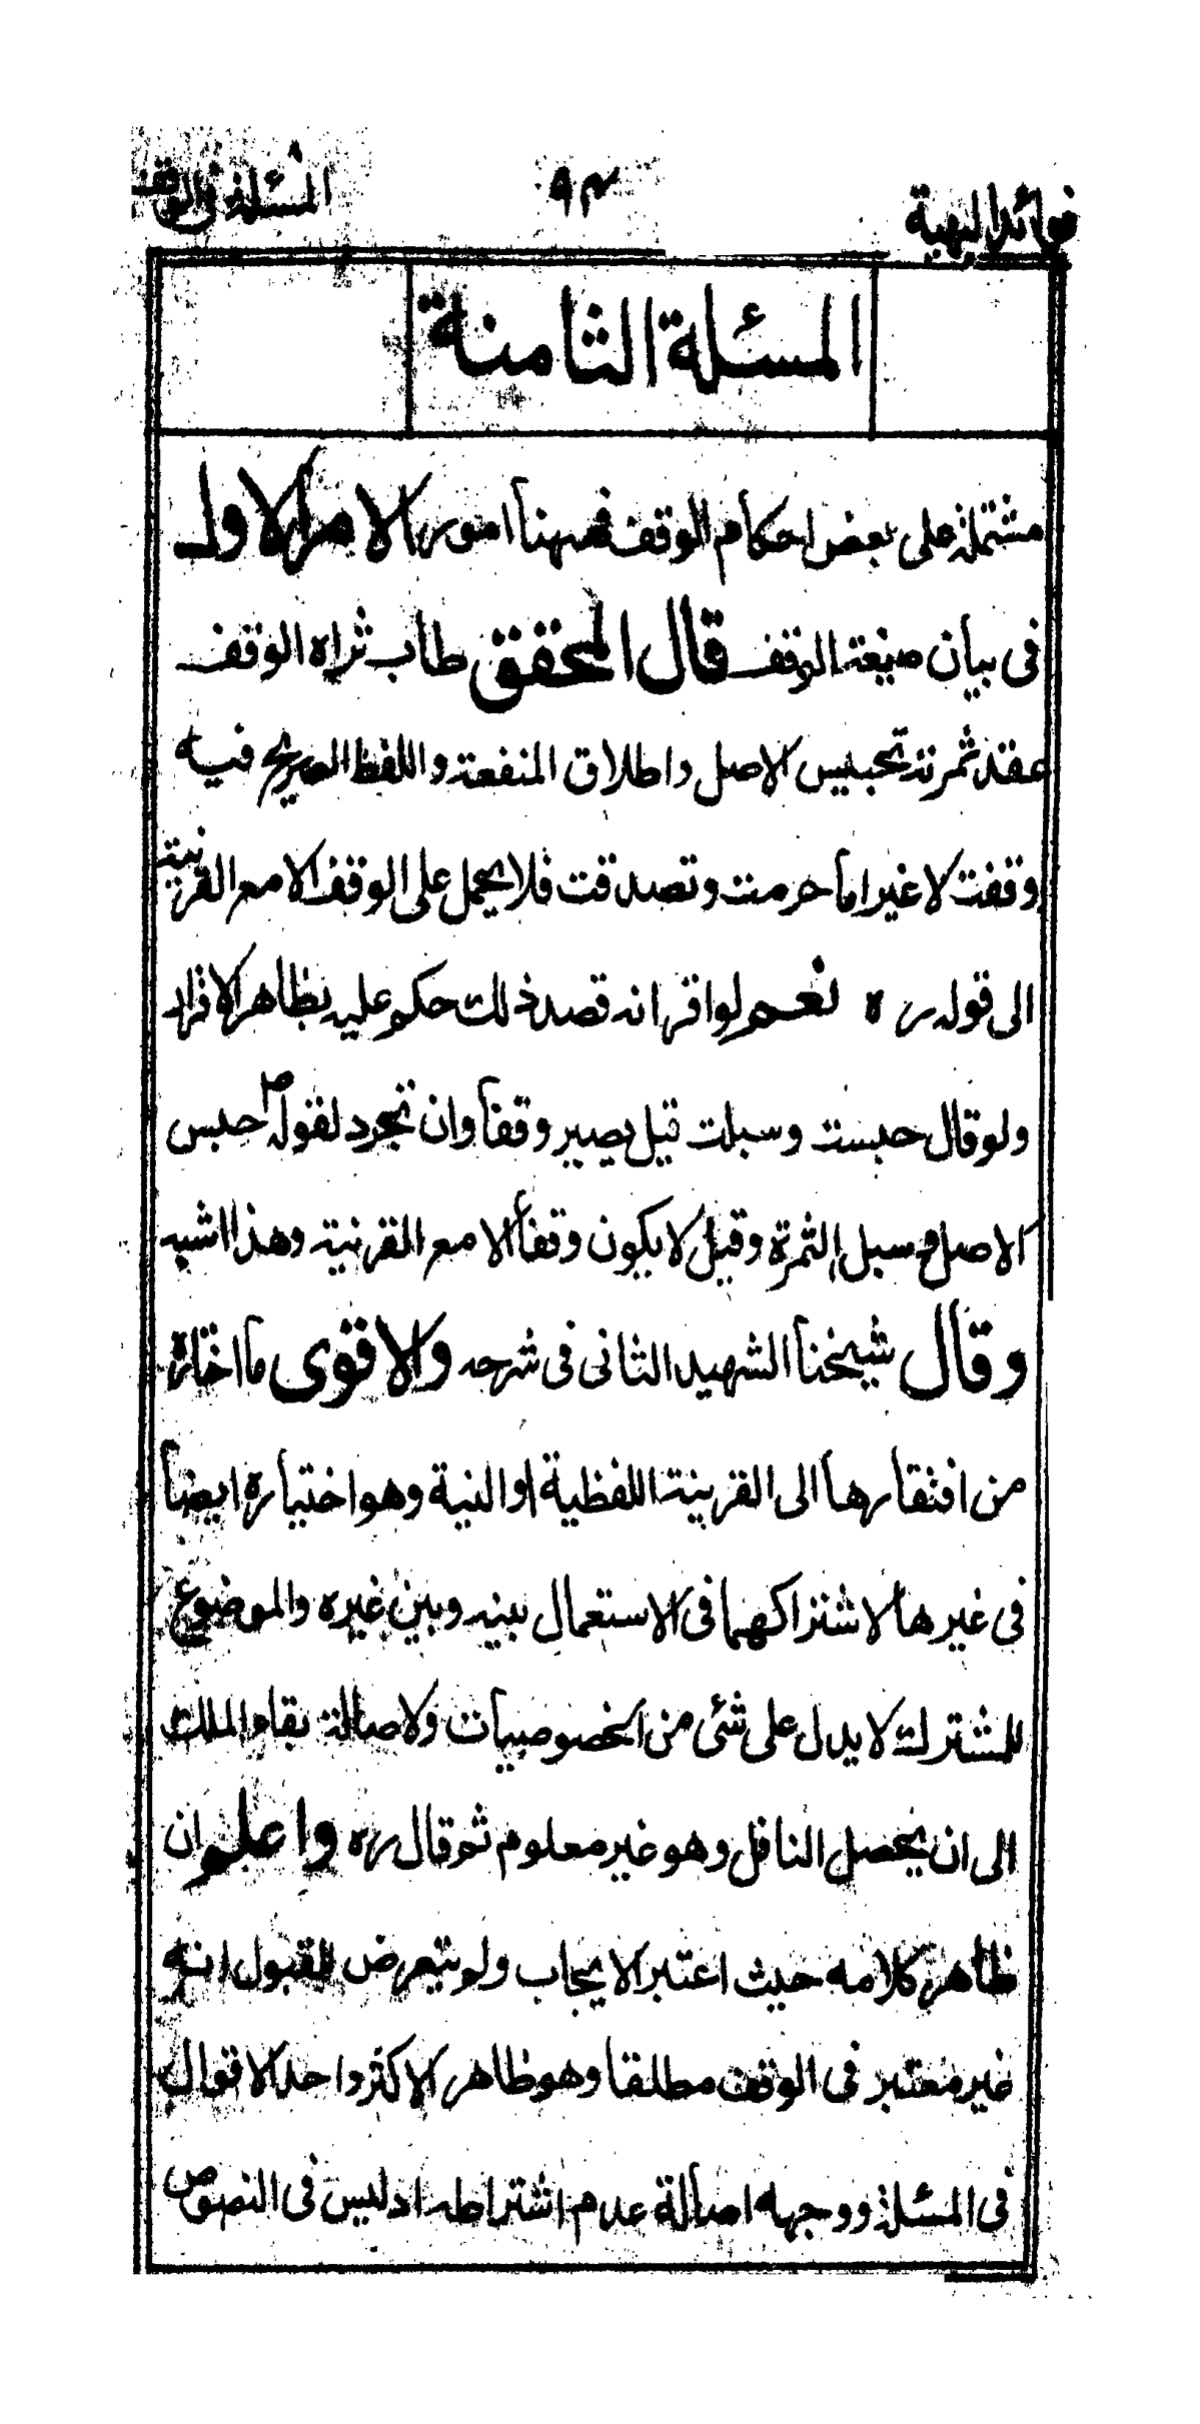 فوائد البهية
٩٣
المسئلة في الوقف
المسئلة الثامنة
مشتملة على بعض احكام الوقف فههنا امور الامر الاول
في بيان صيغة الوقف قال المحقق طاب ثراه الوقف
عقد ثمرته تحبيس الاصل واطلاق المنفعة واللفظ الصريح فيه
وقفت لا غير اما حرمت وتصدقت فلا يحمل على الوقف الا مع القرينة
الى قوله ره نعم لو اقر انه قصد ذلك حكم عليه بظاهر الاقرار
ولو قال حبست وسبلت قيل يصير وقفا وان تجرد لقوله ص حبس
الاصل و سبل الثمرة وقيل لا يكون وقفا الا مع القرنية وهذا اشبه
وقال شيخنا الشهيد الثاني في شرحه والاقوى ما اختاره
من افتقارها الى القرينة اللفظية او النية وهو اختياره ايضا
في غيرها لاشتراكهما في الاستعمال بينه وبين غيره والموضوع
للمشترك لا يدل على شئ من الخصوصيات ولاصالة بقاء الملك
الى ان يحصل الناقل وهو غير معلوم ثم قال ره واعلم ان
ظاهر كلامه حيث اعتبر الايجاب ولم يتعرض للقبول انه
غير معتبر في الوقف مطلقا وهو ظاهر الاكثر واحد الاقوال
في المسئلة ووجهه اصالة عدم اشتراطه اذ ليس في النصوص